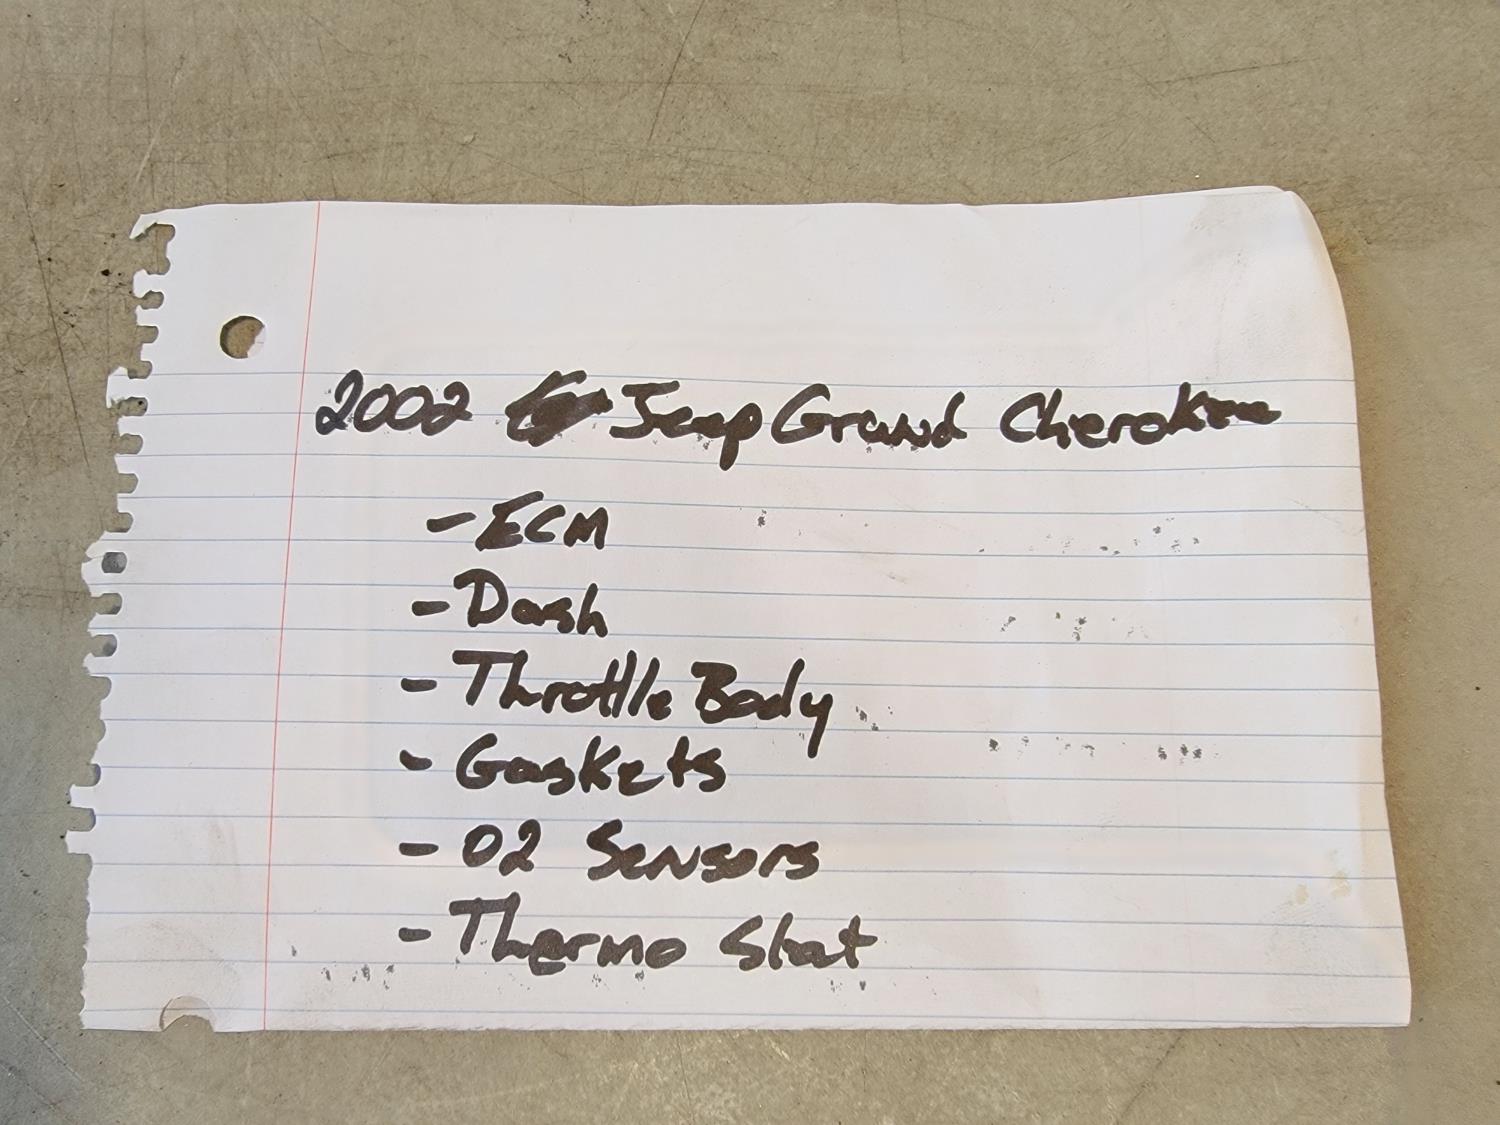 2002 Jeep Grand Cherokee
- ECM
- Dash
- Throttle Body
- Gaskets
- O2 Sensors
- Thermo Stat